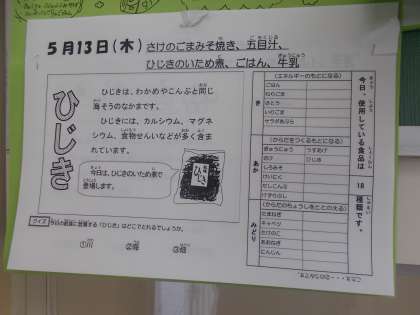 5月13日(木) さけのごまみそ焼き、五目汁、
ひじきのいため煮、ごはん、牛乳
ひじき
ひじきは、わかめやこんぶと同じ
海そうのなかまです。
ひじきには、カルシウム、マグネ
シウム、食物せんいなどが多く含ま
れています。
今日は、ひじきのいため煮で
登場します。
ひじき
クイズ 今日の給食に登場する「ひじき」はどこでとれるでしょうか。
①川 ②海 ③畑
今日、使用している食品は 18 種類です。
き
(エネルギーのもとになる)
ごはん
ねりごま
さとう
いりごま
サラダあぶら
あか
(からだをつくるもとになる)
ぎゅうにゅう うすあげ
さけ ひじき
しろみそ
けいにく
だしこんぶ
けずりぶし
みどり
(からだのちょうしをととのえる)
たまねぎ
キャベツ
たけのこ
あおねぎ
にんじん